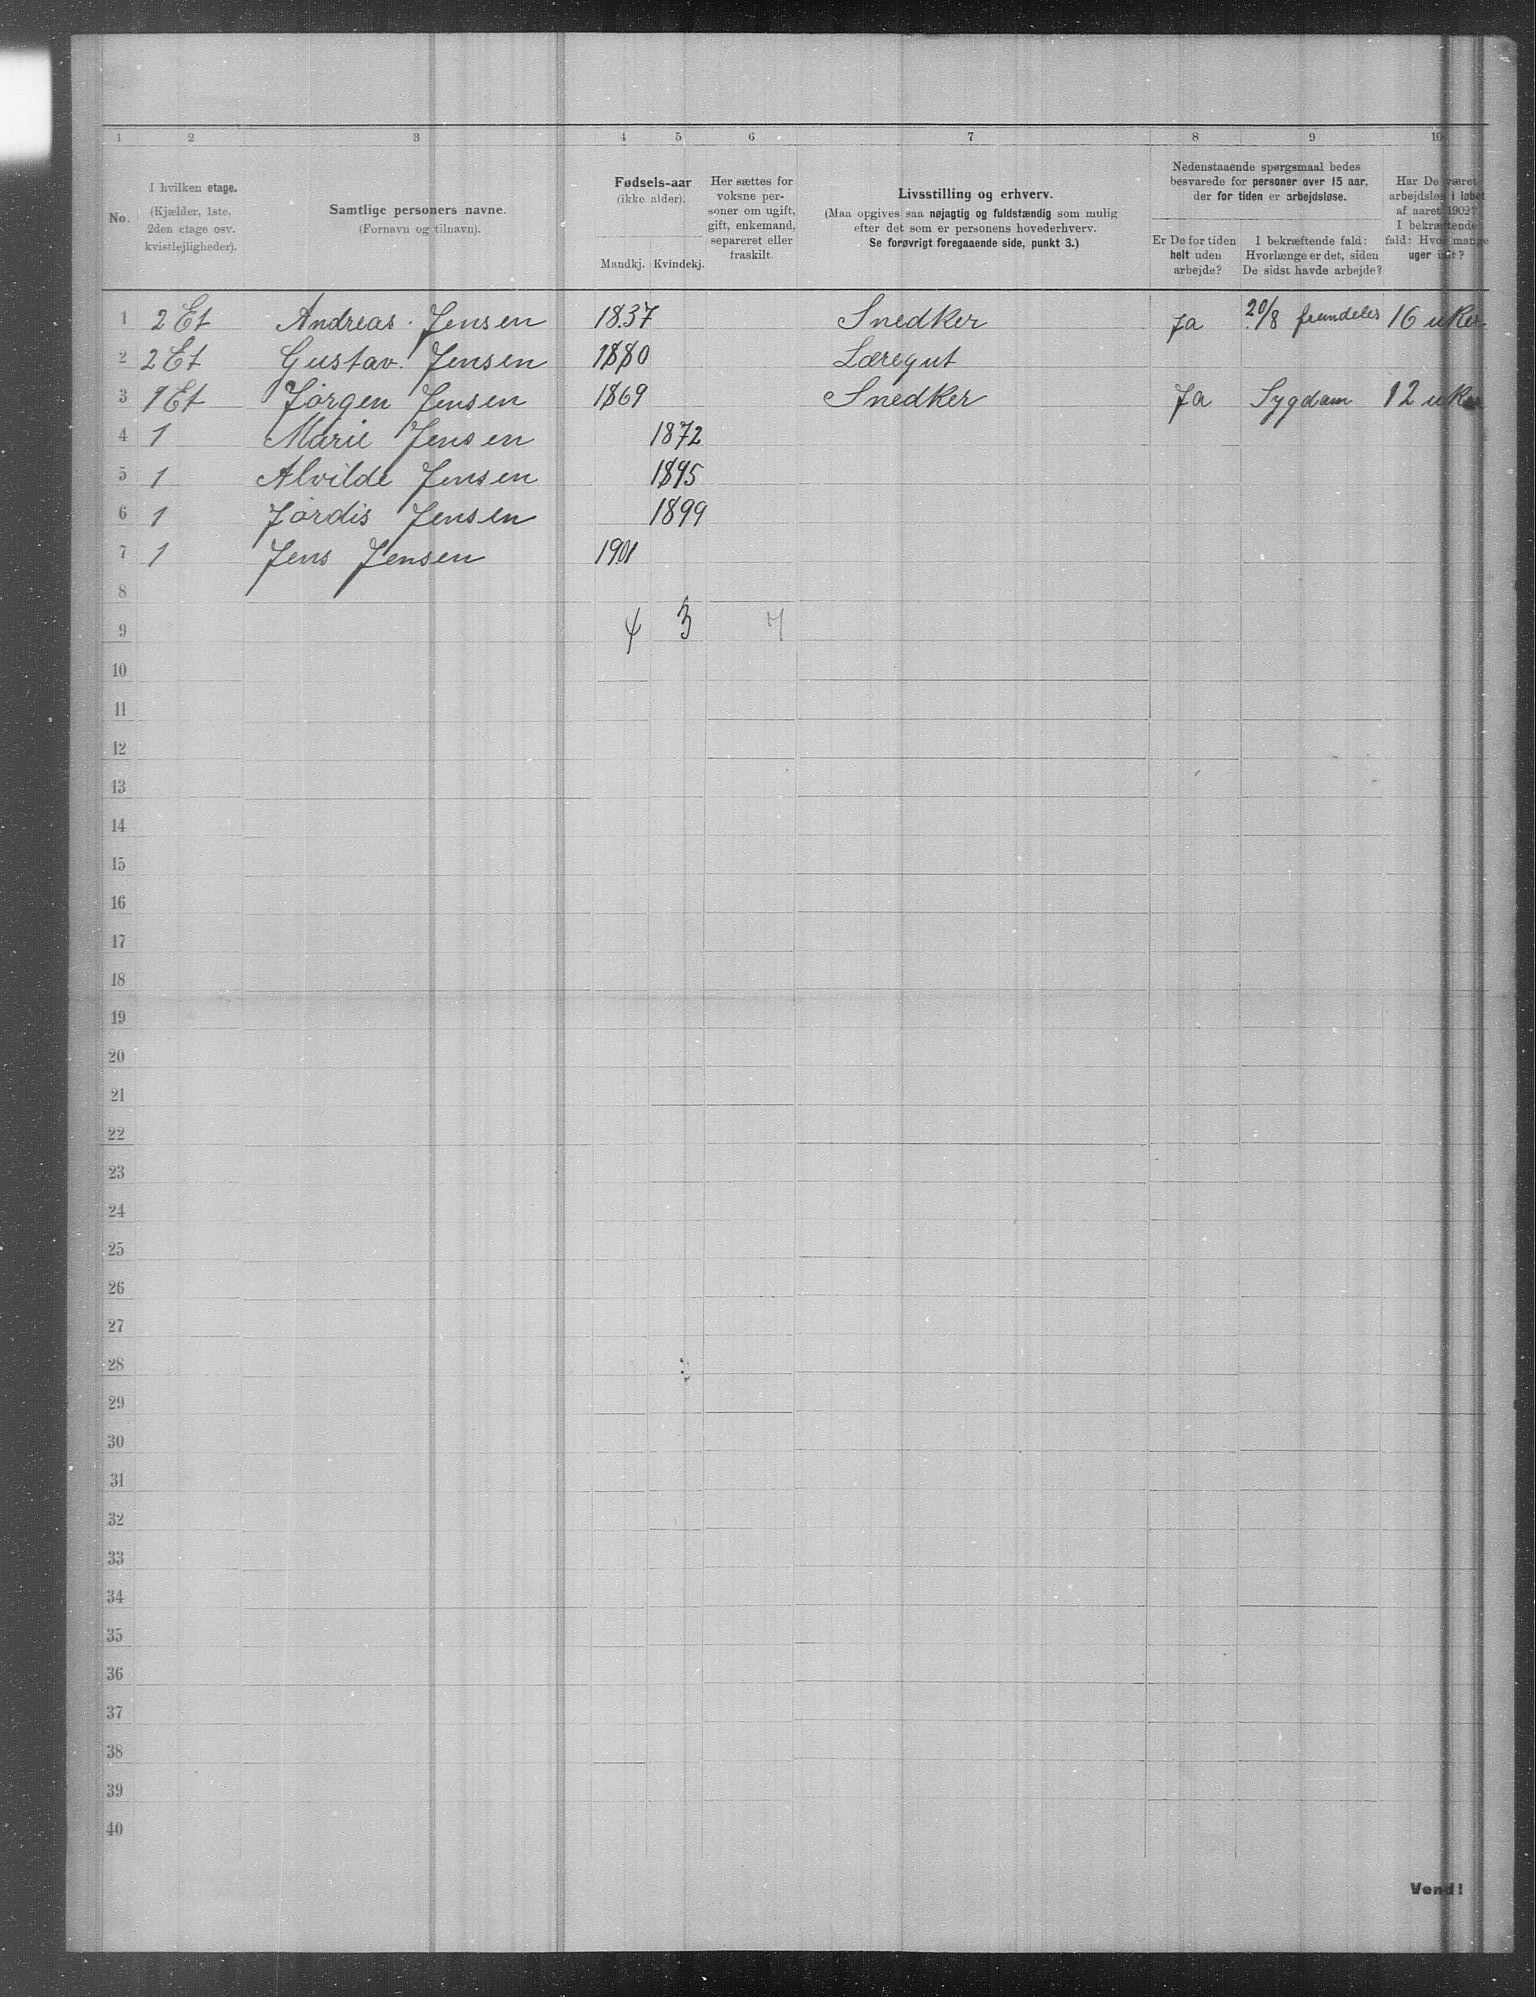 1 2 3 4 5 6 7 8 9 10
No.
I hvilken etage.
(Kjælder, 1ste, 2den etage osv. kvistlejligheder).
Samtlige personers navne.
(Fornavn og tilnavn).
Fødsels-aar
(ikke alder).
Mandkj. Kvindekj.
Her sættes for voksne personer om ugift, gift, enkemand, separeret eller fraskilt.
Livsstilling og erhverv.
(Maa opgives saa nøjagtig og fuldstændig som mulig
efter det som er personens hovederhverv.
Se forøvrigt foregaaende side, punkt 3.)
Nedenstaaende spørgsmaal bedes
besvarede for personer over 15 aar,
der for tiden er arbejdsløse.
Er De for tiden helt uden arbejde?
I bekræftende fald: Hvorlænge er det, siden De sidst havde arbejde?
Har De været arbejdsløs i løbet af aaret 1902? I bekræftende fald: Hvor mange uger ialt?
1 2 Et Andreas Jensen 1837 Snedker Ja 20/8 16 uker
2 2 Et Gustav Jensen 1880 Læregut
3 1 Et Jørgen Jensen 1869 Snedker Ja Sygdam 12 uker
4 1 Marie Jensen 1872
5 1 Alvilde Jensen 1895
6 1 Jørdis Jensen 1899
7 1 Jens Jensen 1901
8
9 4 3 7
10
11
12
13
14
15
16
17
18
19
20
21
22
23
24
25
26
27
28
29
30
31
32
33
34
35
36
37
38
39
40
Vend!